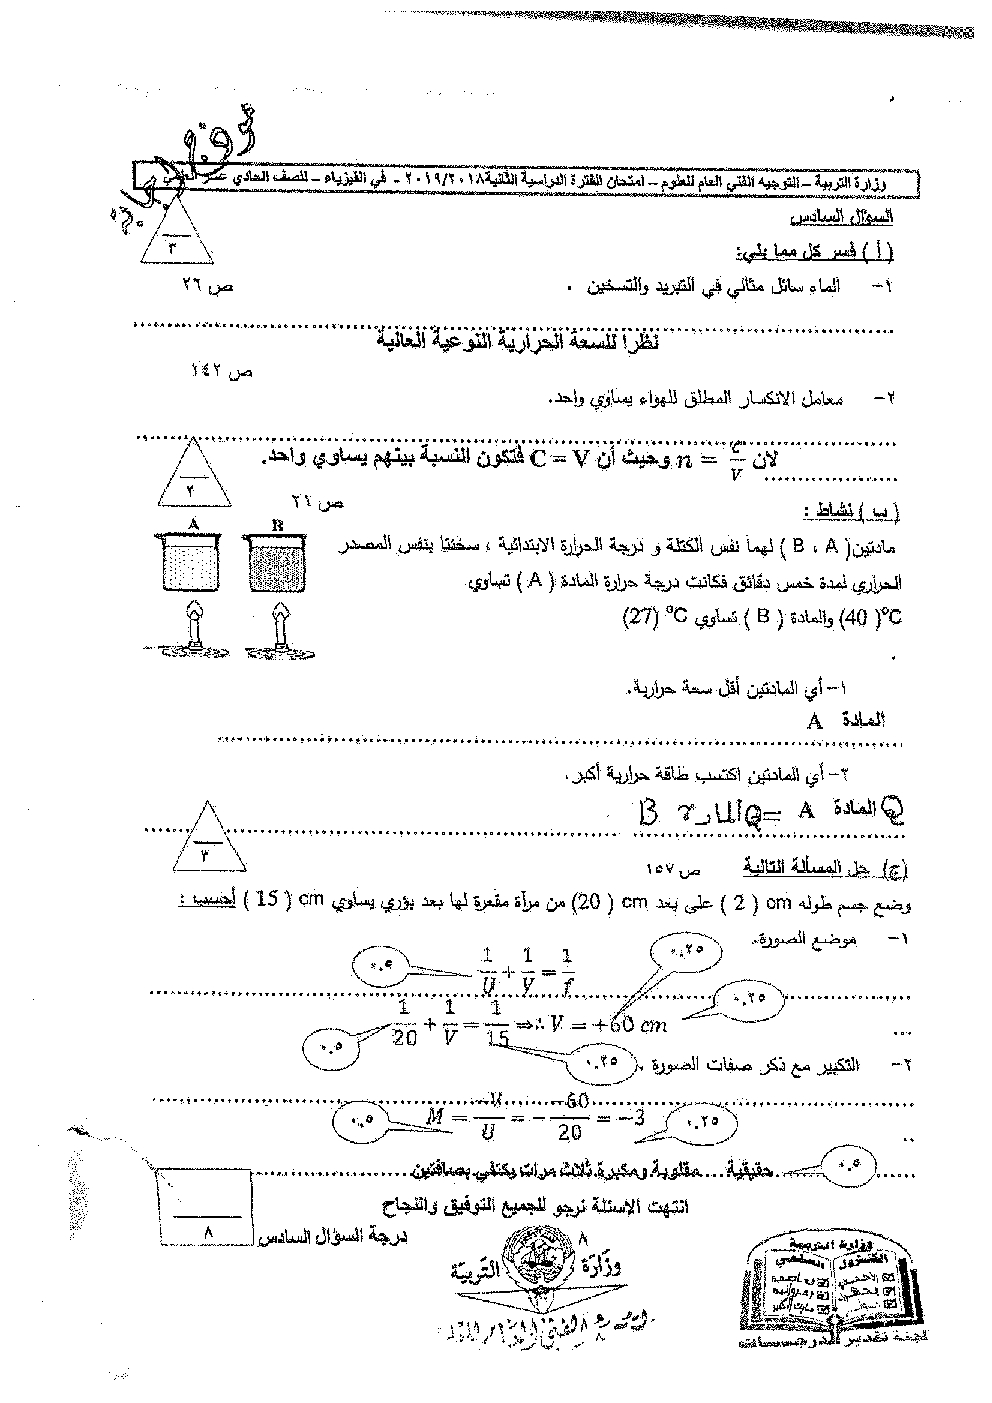 نموذج إجابة
وزارة التربية – التوجيه الفني العام للعلوم – امتحان الفترة الدراسية الثانية ٢٠١٩/٢٠١٨ - في الفيزياء – للصف الحادي عشر العلمي
السؤال السادس
٣
( أ ) فسر كل مما يلي:
١- الماء سائل مثالي في التبريد والتسخين . ص ٢٦
نظرا للسعة الحرارية النوعية العالية
ص ١٤٢
٢- معامل الانكسار المطلق للهواء يساوي واحد.
لان n = c/V وحيث أن C = V فتكون النسبة بينهم يساوي واحد.
٢
( ب ) نشاط : ص ٢٦
A B
مادتين( B ، A ) لهما نفس الكتلة و درجة الحرارة الابتدائية ، سخنتا بنفس المصدر
الحراري لمدة خمس دقائق فكانت درجة حرارة المادة ( A ) تساوي
(40 )°C والمادة ( B ) تساوي (27) °C
١- أي المادتين أقل سعة حرارية.
المادة A
٢- أي المادتين اكتسب طاقة حرارية أكبر.
Q المادة A = Q المادة B
٣
(ج) حل المسألة التالية ص ١٥٧
وضع جسم طوله cm ( 2 ) على بعد cm (20) من مرآة مقعرة لها بعد بؤري يساوي cm ( 15 ) أحسب :
١- موضع الصورة.
٠.٥ 1/U + 1/V = 1/f ٠.٢٥
٠.٢٥
1/20 + 1/V = 1/15 ⇒∴ V = +60 cm
٠.٥ ٠.٢٥
٢- التكبير مع ذكر صفات الصورة .
٠.٥ M = -V/U = - 60/20 = -3 ٠.٢٥
حقيقية مقلوبة ومكبرة ثلاث مرات يكتفي بصفتين ٠.٥
انتهت الاسئلة نرجو للجميع التوفيق والنجاح
٨ درجة السؤال السادس
٨
وزارة التربية
وزارة التربية
الكنترول العلمي
لجنة تقدير الدرجات